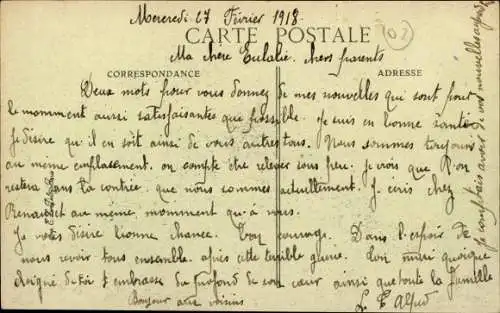 Mercredi 27 Février 1918
CARTE POSTALE
Ma chère Eulalie. chers parents
CORRESPONDANCE
ADRESSE
Deux mots pour vous donnez de mes nouvelles qui sont pour
le momment aussi satisfaisantes que possible. Je suis en bonne santé
Je désire qu'il en soit ainsi de vous autres tous. Nous sommes toujours
au même emplacement. on compte être relever sous peu. Je crois que l'on
restera dans la contrée. que nous sommes actuellement. J. écris chez
Renaudet au même, momment qu'à nous.
Je votes désire bonne chance. Bon courrage. Dans l'espoir de
nous revoir tous ensemble. après cette terrible guerre. Ton mari quoique
éloigné de toi t embrasse du profond de son cœur ainsi que toute la famille
Bonjour aux voisins
Alfred
Je comptais avoir de vos nouvelles